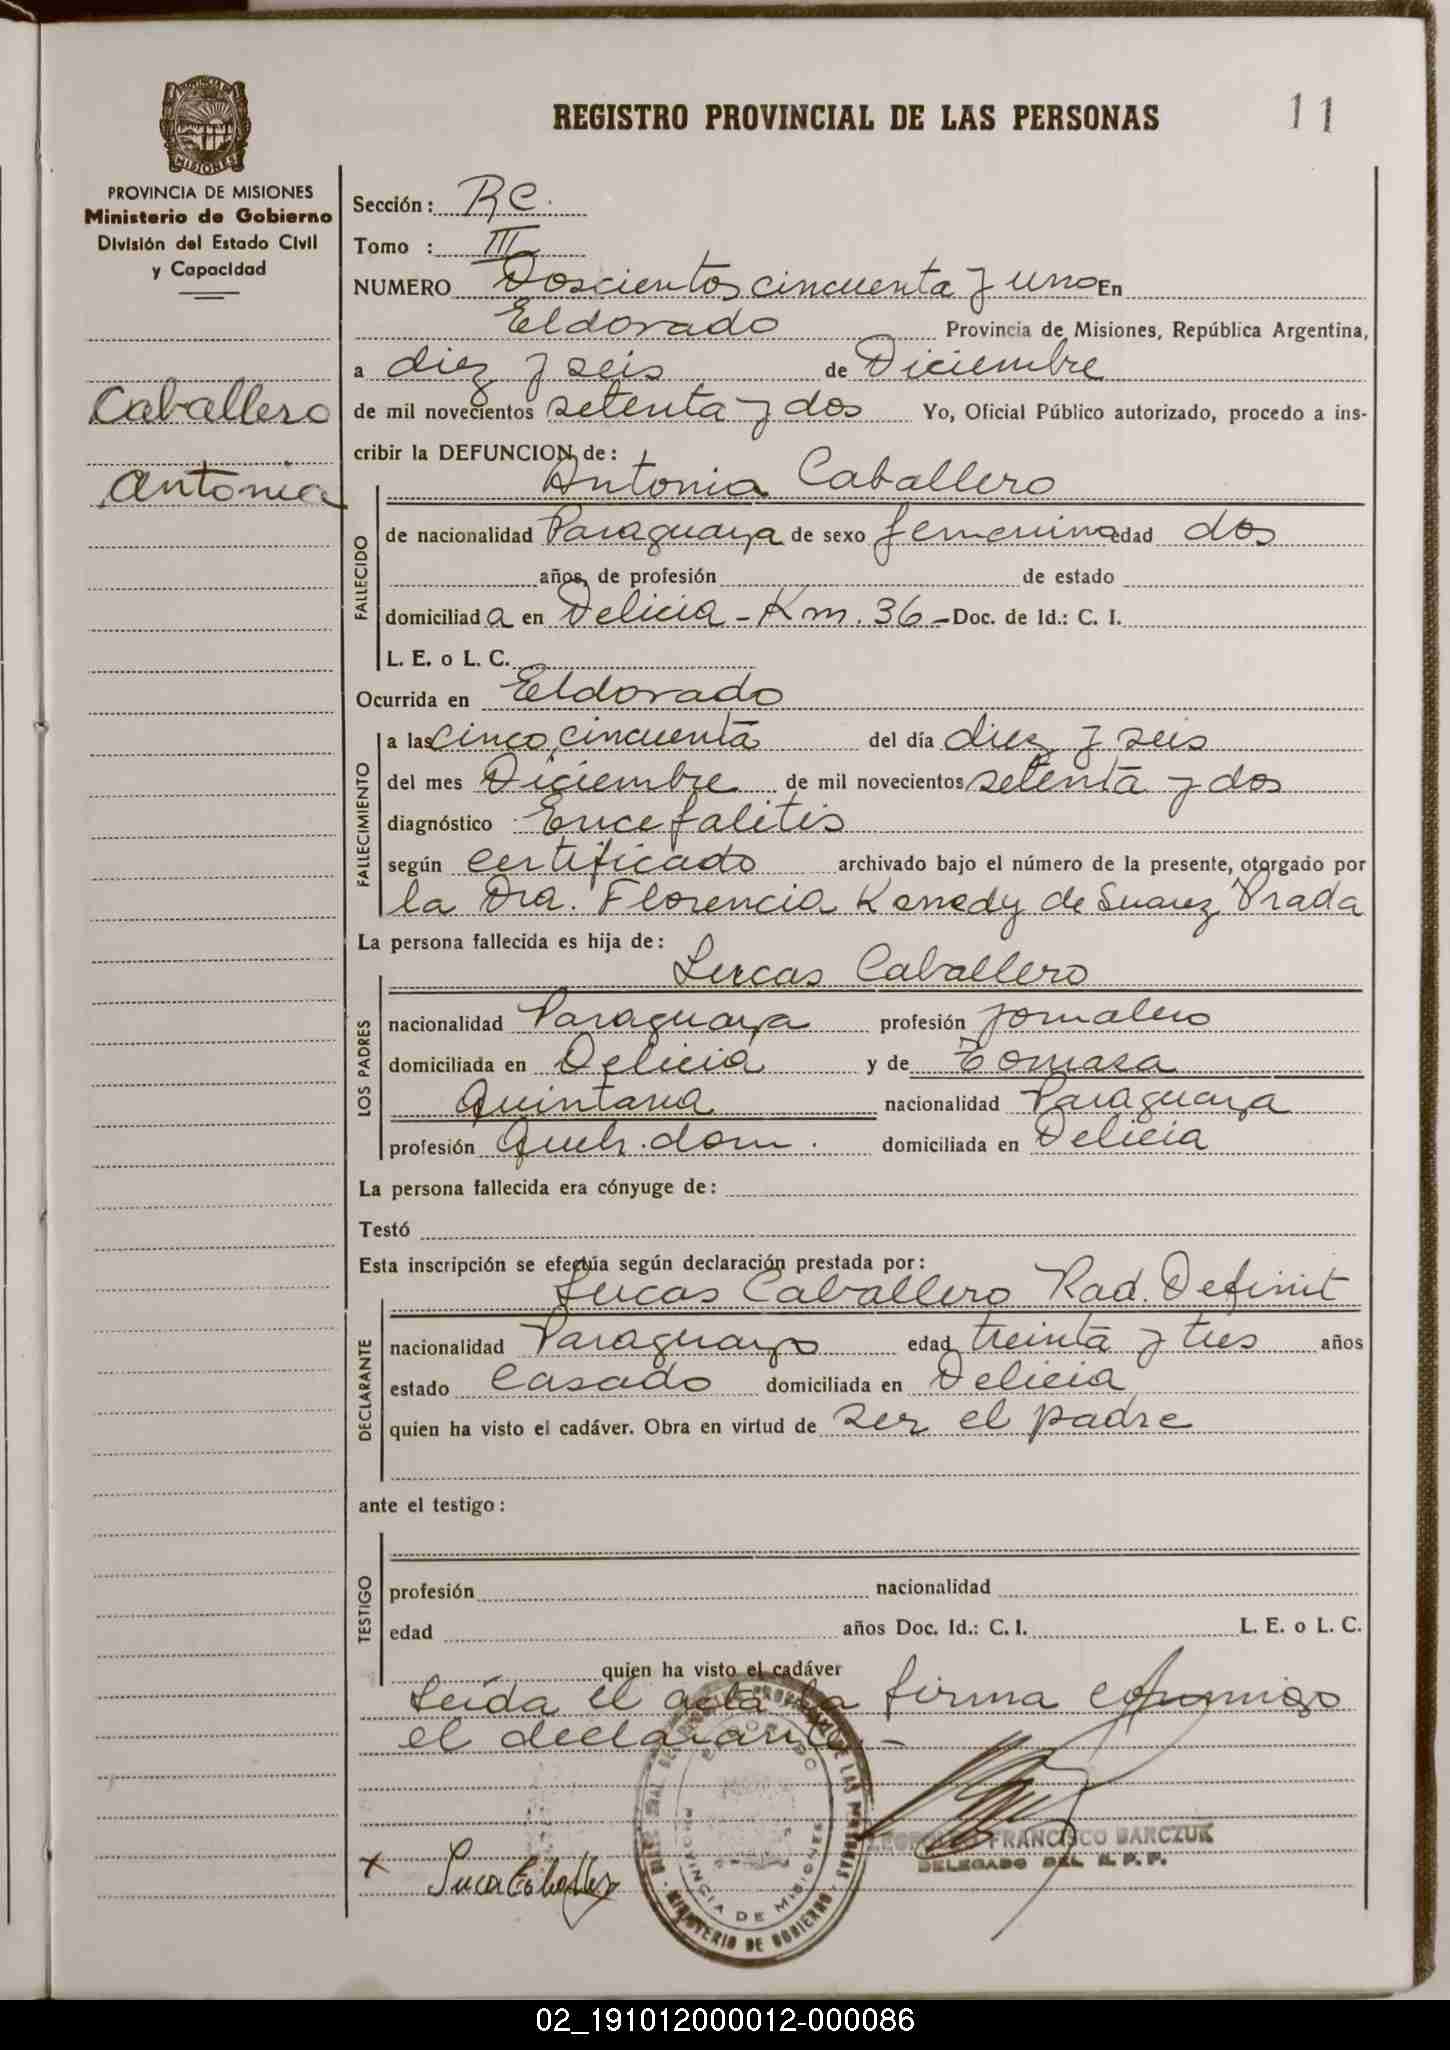 REGISTRO PROVINCIAL DE LAS PERSONAS
11
PROVINCIA DE MISIONES
Ministerio de Gobierno
División del Estado Civil
y Capacidad
Caballero
Antonia
Sección: RC.
Tomo : III
NUMERO Doscientos cincuenta y uno En
Eldorado Provincia de Misiones, República Argentina,
a diez y seis de Diciembre
de mil novecientos setenta y dos Yo, Oficial Público autorizado, procedo a ins-
cribir la DEFUNCION de:
Antonia Caballero
FALLECIDO
de nacionalidad Paraguaya de sexo femenino edad dos
años, de profesión de estado
domiciliad a en Delicia - Km. 36 - Doc. de Id.: C. I.
L. E. o L. C.
Ocurrida en Eldorado
FALLECIMIENTO
a las cinco, cincuenta del día diez y seis
del mes Diciembre de mil novecientos setenta y dos
diagnóstico Encefalitis
según certificado archivado bajo el número de la presente, otorgado por
la Dra. Florencia Kenedy de Suarez Prada
La persona fallecida es hija de:
Lucas Caballero
LOS PADRES
nacionalidad Paraguaya profesión jornalero
domiciliada en Delicia y de Tomasa
Quintana nacionalidad Paraguaya
profesión Queh. dom. domiciliada en Delicia
La persona fallecida era cónyuge de:
Testó
Esta inscripción se efectúa según declaración prestada por:
Lucas Caballero Rad. Definit
DECLARANTE
nacionalidad Paraguayo edad treinta y tres años
estado Casado domiciliada en Delicia
quien ha visto el cadáver. Obra en virtud de ser el padre
ante el testigo:
TESTIGO
profesión nacionalidad
edad años Doc. Id.: C. I. L. E. o L. C.
quien ha visto el cadáver
Leída el acta la firma conmigo
el declarante -
LEOPOLDO FRANCISCO BARCZUK
DELEGADO DEL R. P. P.
x Lucas Caballero
ELDORADO
PROVINCIA DE MISIONES
MINISTERIO DE GOBIERNO
02_191012000012-000086